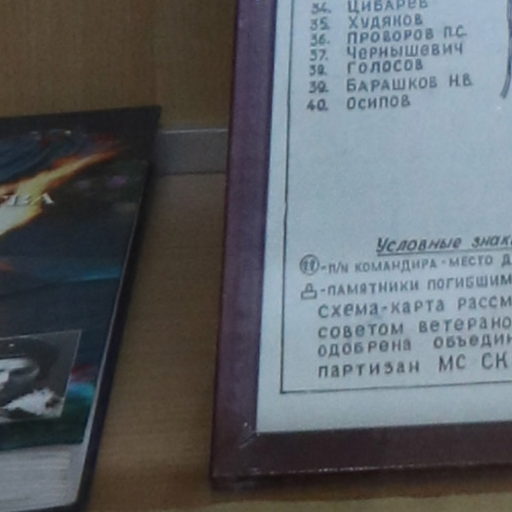 34. ЦИБАРЕВ
35. ХУДЯКОВ
36. ПРОВОРОВ П.С.
37. ЧЕРНЫШЕВИЧ
38. ГОЛОСОВ
39. БАРАШКОВ Н.В.
40. ОСИПОВ
Условные знак
-П/П КОМАНДИРА - МЕСТО Д
-ПАМЯТНИКИ ПОГИБШИМ
СХЕМА-КАРТА РАССМ
СОВЕТОМ ВЕТЕРАНО
ОДОБРЕНА ОБЪЕДИН
ПАРТИЗАН МС СК
ВА